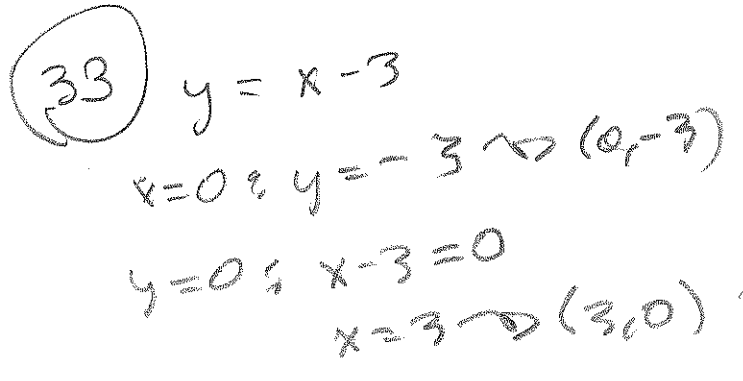 33 y = x - 3
x=0 ; y = -3 ⇝ (0,-3)
y=0 ; x-3=0
x=3 ⇝ (3,0)